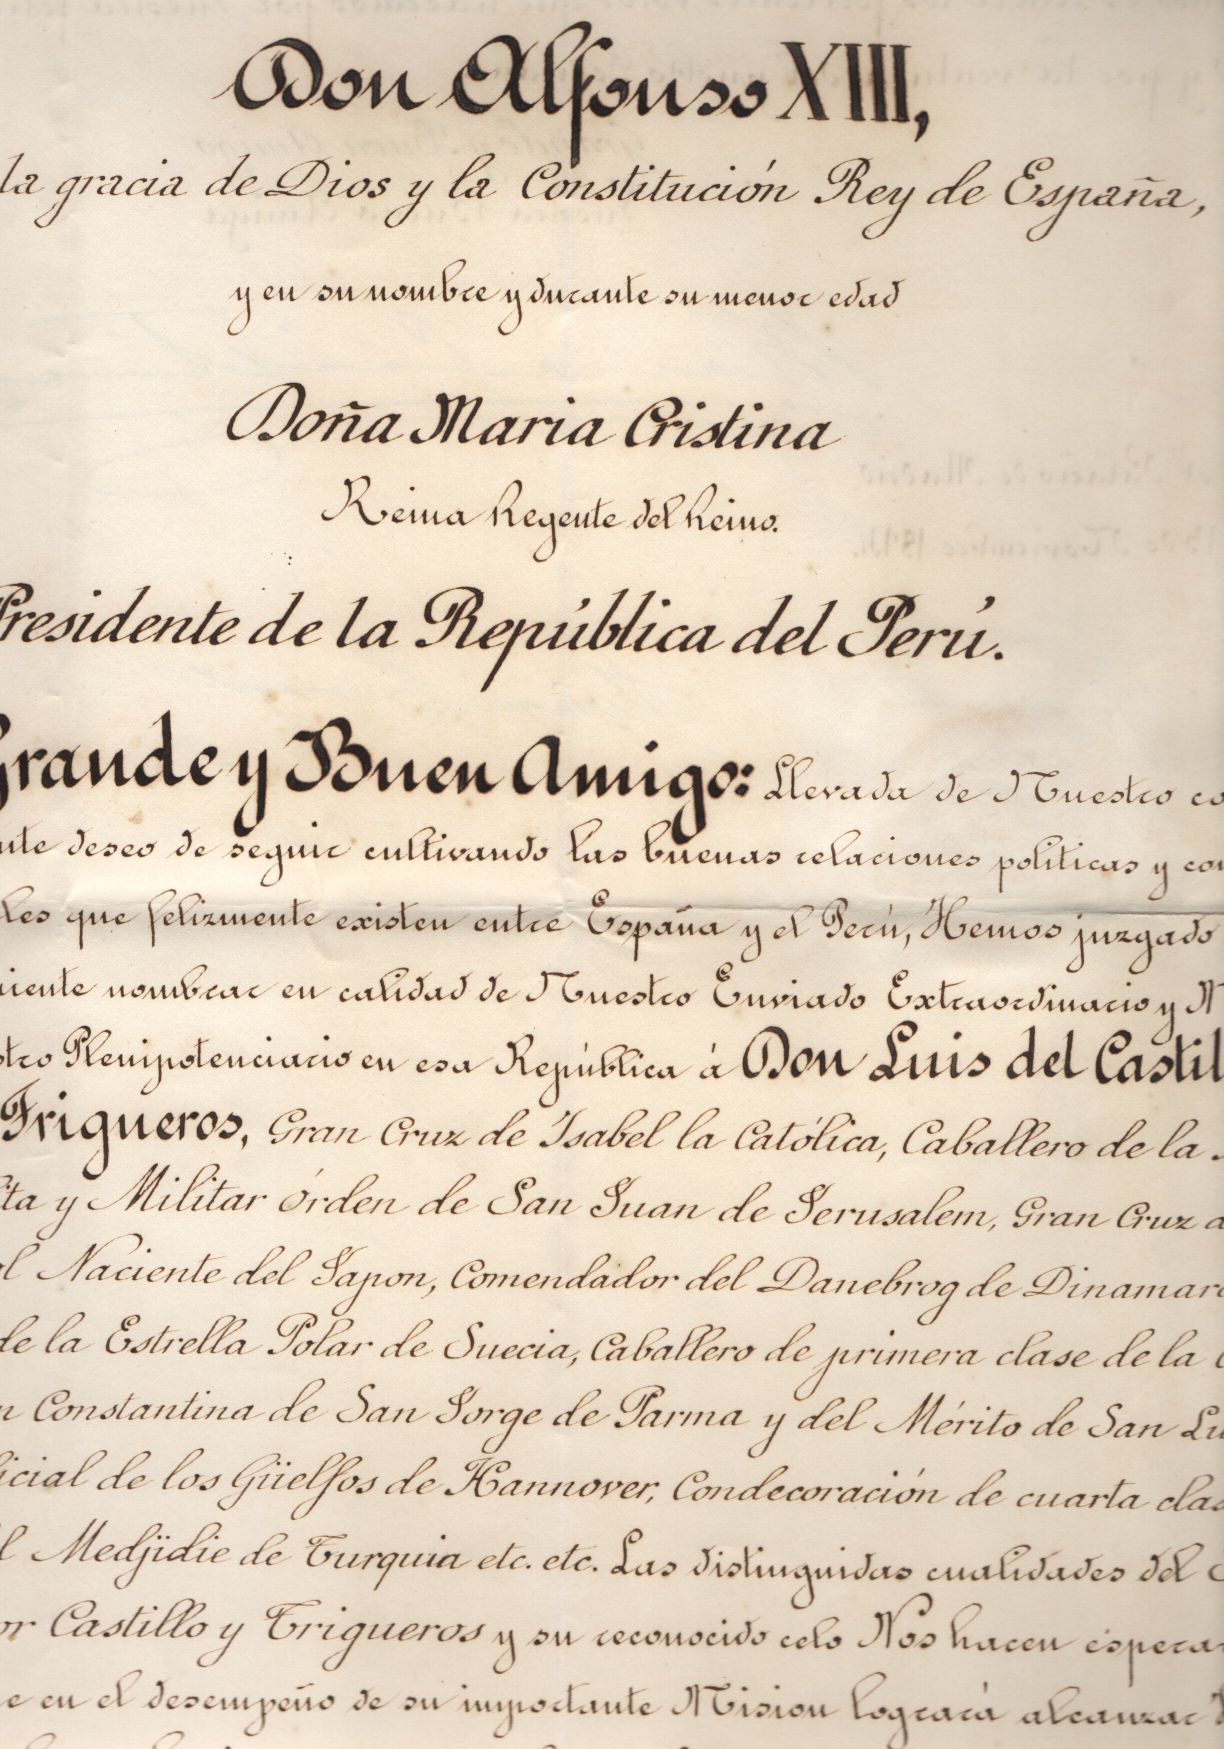 Don Alfonso XIII,
la gracia de Dios y la Constitución Rey de España,
y en su nombre y durante su menor edad
Doña Maria Cristina
Reina Regente del Reino.
Presidente de la República del Perú.
Grande y Buen Amigo: Llevada de Nuestro co
nte deseo de seguir cultivando las buenas relaciones políticas y com
les que felizmente existen entre España y el Perú, Hemos juzgado
niente nombrar en calidad de Nuestro Enviado Extraordinario y M
stro Plenipotenciario en esa República á Don Luis del Castil
Trigueros, Gran Cruz de Isabel la Católica, Caballero de la
ita y Militar órden de San Juan de Jerusalem, Gran Cruz d
ol Naciente del Japon, Comendador del Danebrog de Dinamarc
de la Estrella Polar de Suecia, Caballero de primera clase de la O
n Constantina de San Jorge de Parma y del Mérito de San Lu
icial de los Güelfos de Hannover, Condecoración de cuarta clas
l Medjidie de Turquia etc. etc. Las distinguidas cualidades del S
or Castillo y Trigueros y su reconocido celo Nos hacen esperar
e en el desempeño de su importante Mision logrará alcanzar